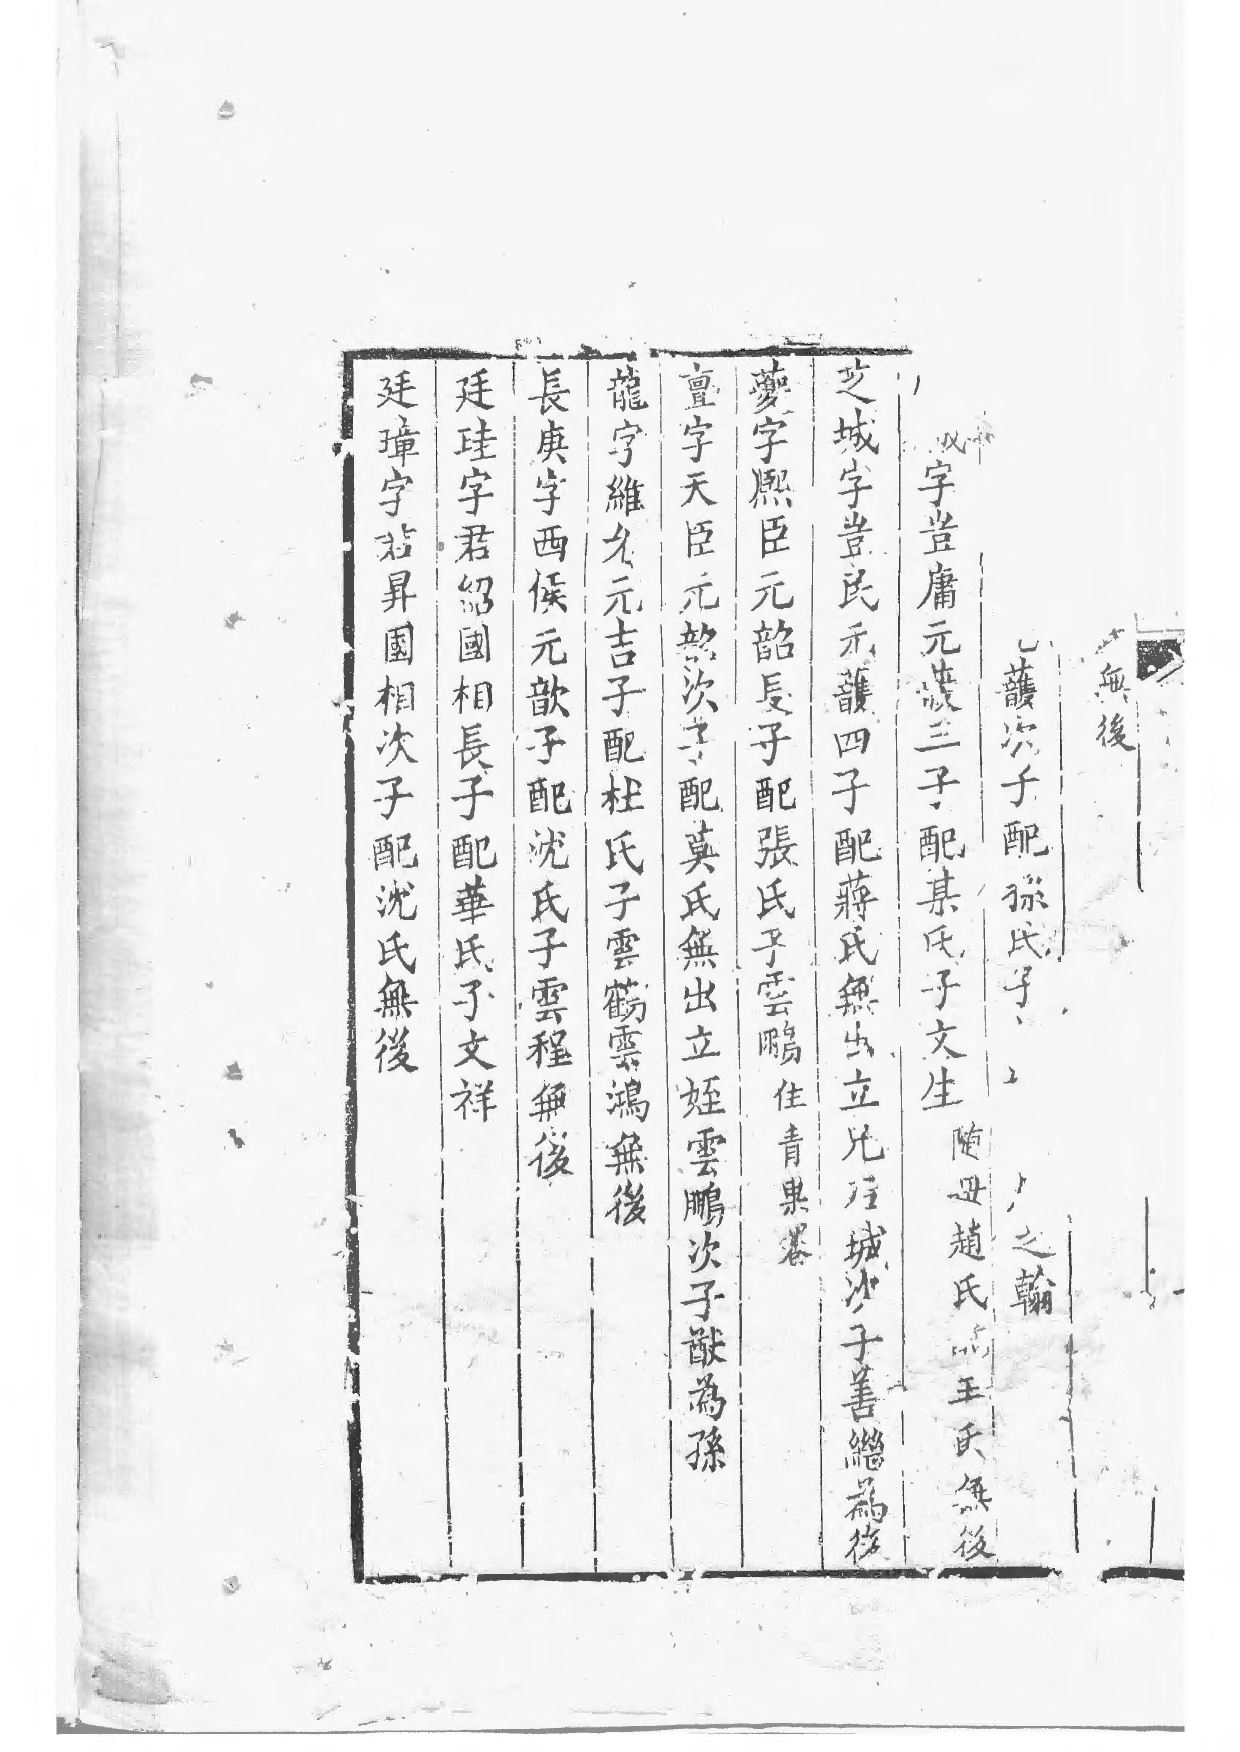 無後
頀次子配孫氏子之翰
字豈庸元頀三子配某氏子文生
随母趙氏王氏無後
芝城字豈民元頀四子配蔣氏無出立兄城次子善繼為後
夔字熙臣元韶長子配張氏子雲鵬
住青果巷
亶字天臣元韶次子配莫氏無出立姪雲鵬次子猷為孫
龍字維允元吉子配杜氏子雲鶴雲鴻無後
長庚字西侯元歆子配沈氏子雲程無後
廷珪字君紹國相長子配華氏子文祥
廷璋字君昇國相次子配沈氏無後